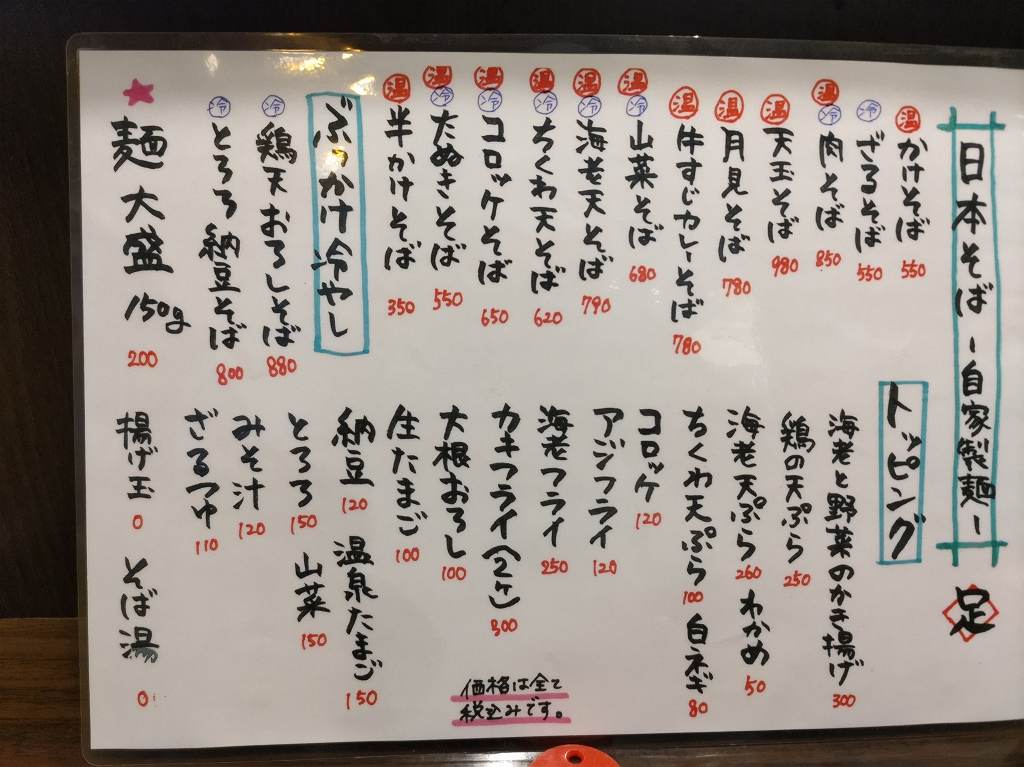 日本そば ー自家製麺ー
足
温 かけそば 550
冷 ざるそば 550
温 冷 肉そば 850
温 天玉そば 980
温 月見そば 780
温 牛すじカレーそば 780
温 冷 山菜そば 680
温 冷 海老天そば 790
温 冷 ちくわ天そば 620
温 冷 コロッケそば 650
温 冷 たぬきそば 550
温 半かけそば 350
ぶっかけ冷やし
冷 鶏天おろしそば 880
冷 とろろ納豆そば 800
★麺大盛 150g 200
トッピング
海老と野菜のかき揚げ 300
鶏の天ぷら 250
海老天ぷら 260 わかめ 50
ちくわ天ぷら 100 白ネギ 80
コロッケ 120
アジフライ 120
海老フライ 250
カキフライ(2ヶ) 300
大根おろし 100
生たまご 100
納豆 120 温泉たまご 150
とろろ 150 山菜 150
みそ汁 120
ざるつゆ 110
揚げ玉 0 そば湯 0
価格は全て
税込みです。